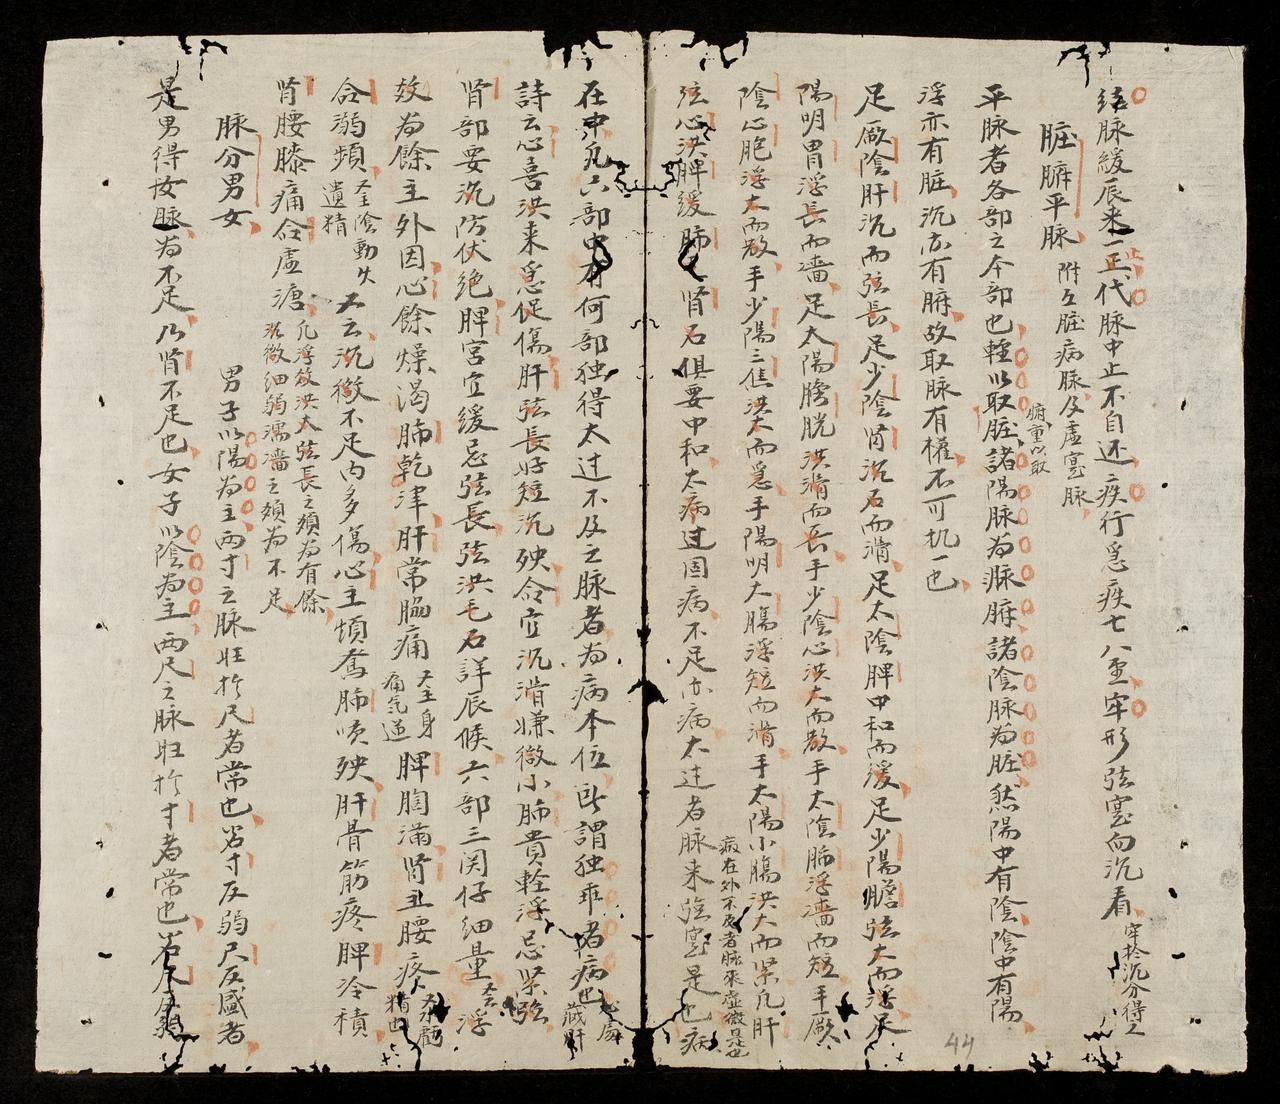 結脉緩辰来一止代脉中止不自还疾行急疾七八至牢形弦寔而沉看牢於沉分得之
脏腑平脉附五脏病脉及虛寔脉
平脉者各部之本部也輕以取脏諸陽脉为脉腑諸陰脉为脏然陽中有陰陰中有陽
腑重以取
浮亦有脏沉亦有腑故取脉有權不可执一也
足厥陰肝沉而弦長足少陰肾沉石而滑足太陰脾中和而緩足少陽膽弦大而浮足
陽明胃浮長而濇足太陽膀胱洪滑而長手少陰心洪大而散手太陰肺浮濇而短手厥
陰心胞浮大而散手少陽三焦洪大而急手陽明大腸浮短而滑手太陽小腸洪大而紧凡肝
弦心洪脾緩肺毛肾石俱要中和太病过固病不足亦病太过者脉来強寔是也病
病在外不及者脉来虛微是也
在中凡六部中有何部独得太过不及之脉者为病本位所謂独乖者病也
詩云心喜洪来急促傷肝弦長好短沉殃命宜沉滑嫌微小肺貴輕浮忌紧弦
肾部要沉防伏绝脾宮宜緩忌弦長弦洪毛石詳辰候六部三関仔細量又云浮
效为餘主外因心餘燥渴肺乾津肝常脇痛又主身痛气逆脾胸滿肾主腰疼
命溺頻又主陰動失遺精又云沉微不足内多傷心主煩驚肺咳殃肝骨筋疼脾冷積
肾腰膝痛命虛溏凡浮效洪大弦長之類为有餘沉微細弱濡濇之類为不足
脉分男女
男子以陽为主两寸之脉旺於尺者常也若寸反弱尺反盛者
是男得女脉为不足乃肾不足也女子以陰为主两尺之脉旺於寸者常也若尺反弱
44